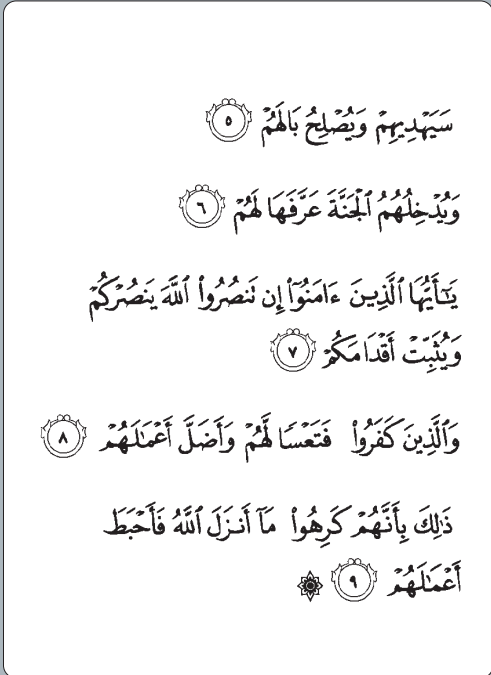 سَيَهْدِيهِمْ وَيُصْلِحُ بَالَهُمْ ٥
وَيُدْخِلُهُمُ ٱلْجَنَّةَ عَرَّفَهَا لَهُمْ ٦
يَـٰٓأَيُّهَا ٱلَّذِينَ ءَامَنُوٓا۟ إِن تَنصُرُوا۟ ٱللَّهَ يَنصُرْكُمْ
وَيُثَبِّتْ أَقْدَامَكُمْ ٧
وَٱلَّذِينَ كَفَرُوا۟ فَتَعْسًا لَّهُمْ وَأَضَلَّ أَعْمَـٰلَهُمْ ٨
ذَٰلِكَ بِأَنَّهُمْ كَرِهُوا۟ مَآ أَنزَلَ ٱللَّهُ فَأَحْبَطَ
أَعْمَـٰلَهُمْ ٩ ۞